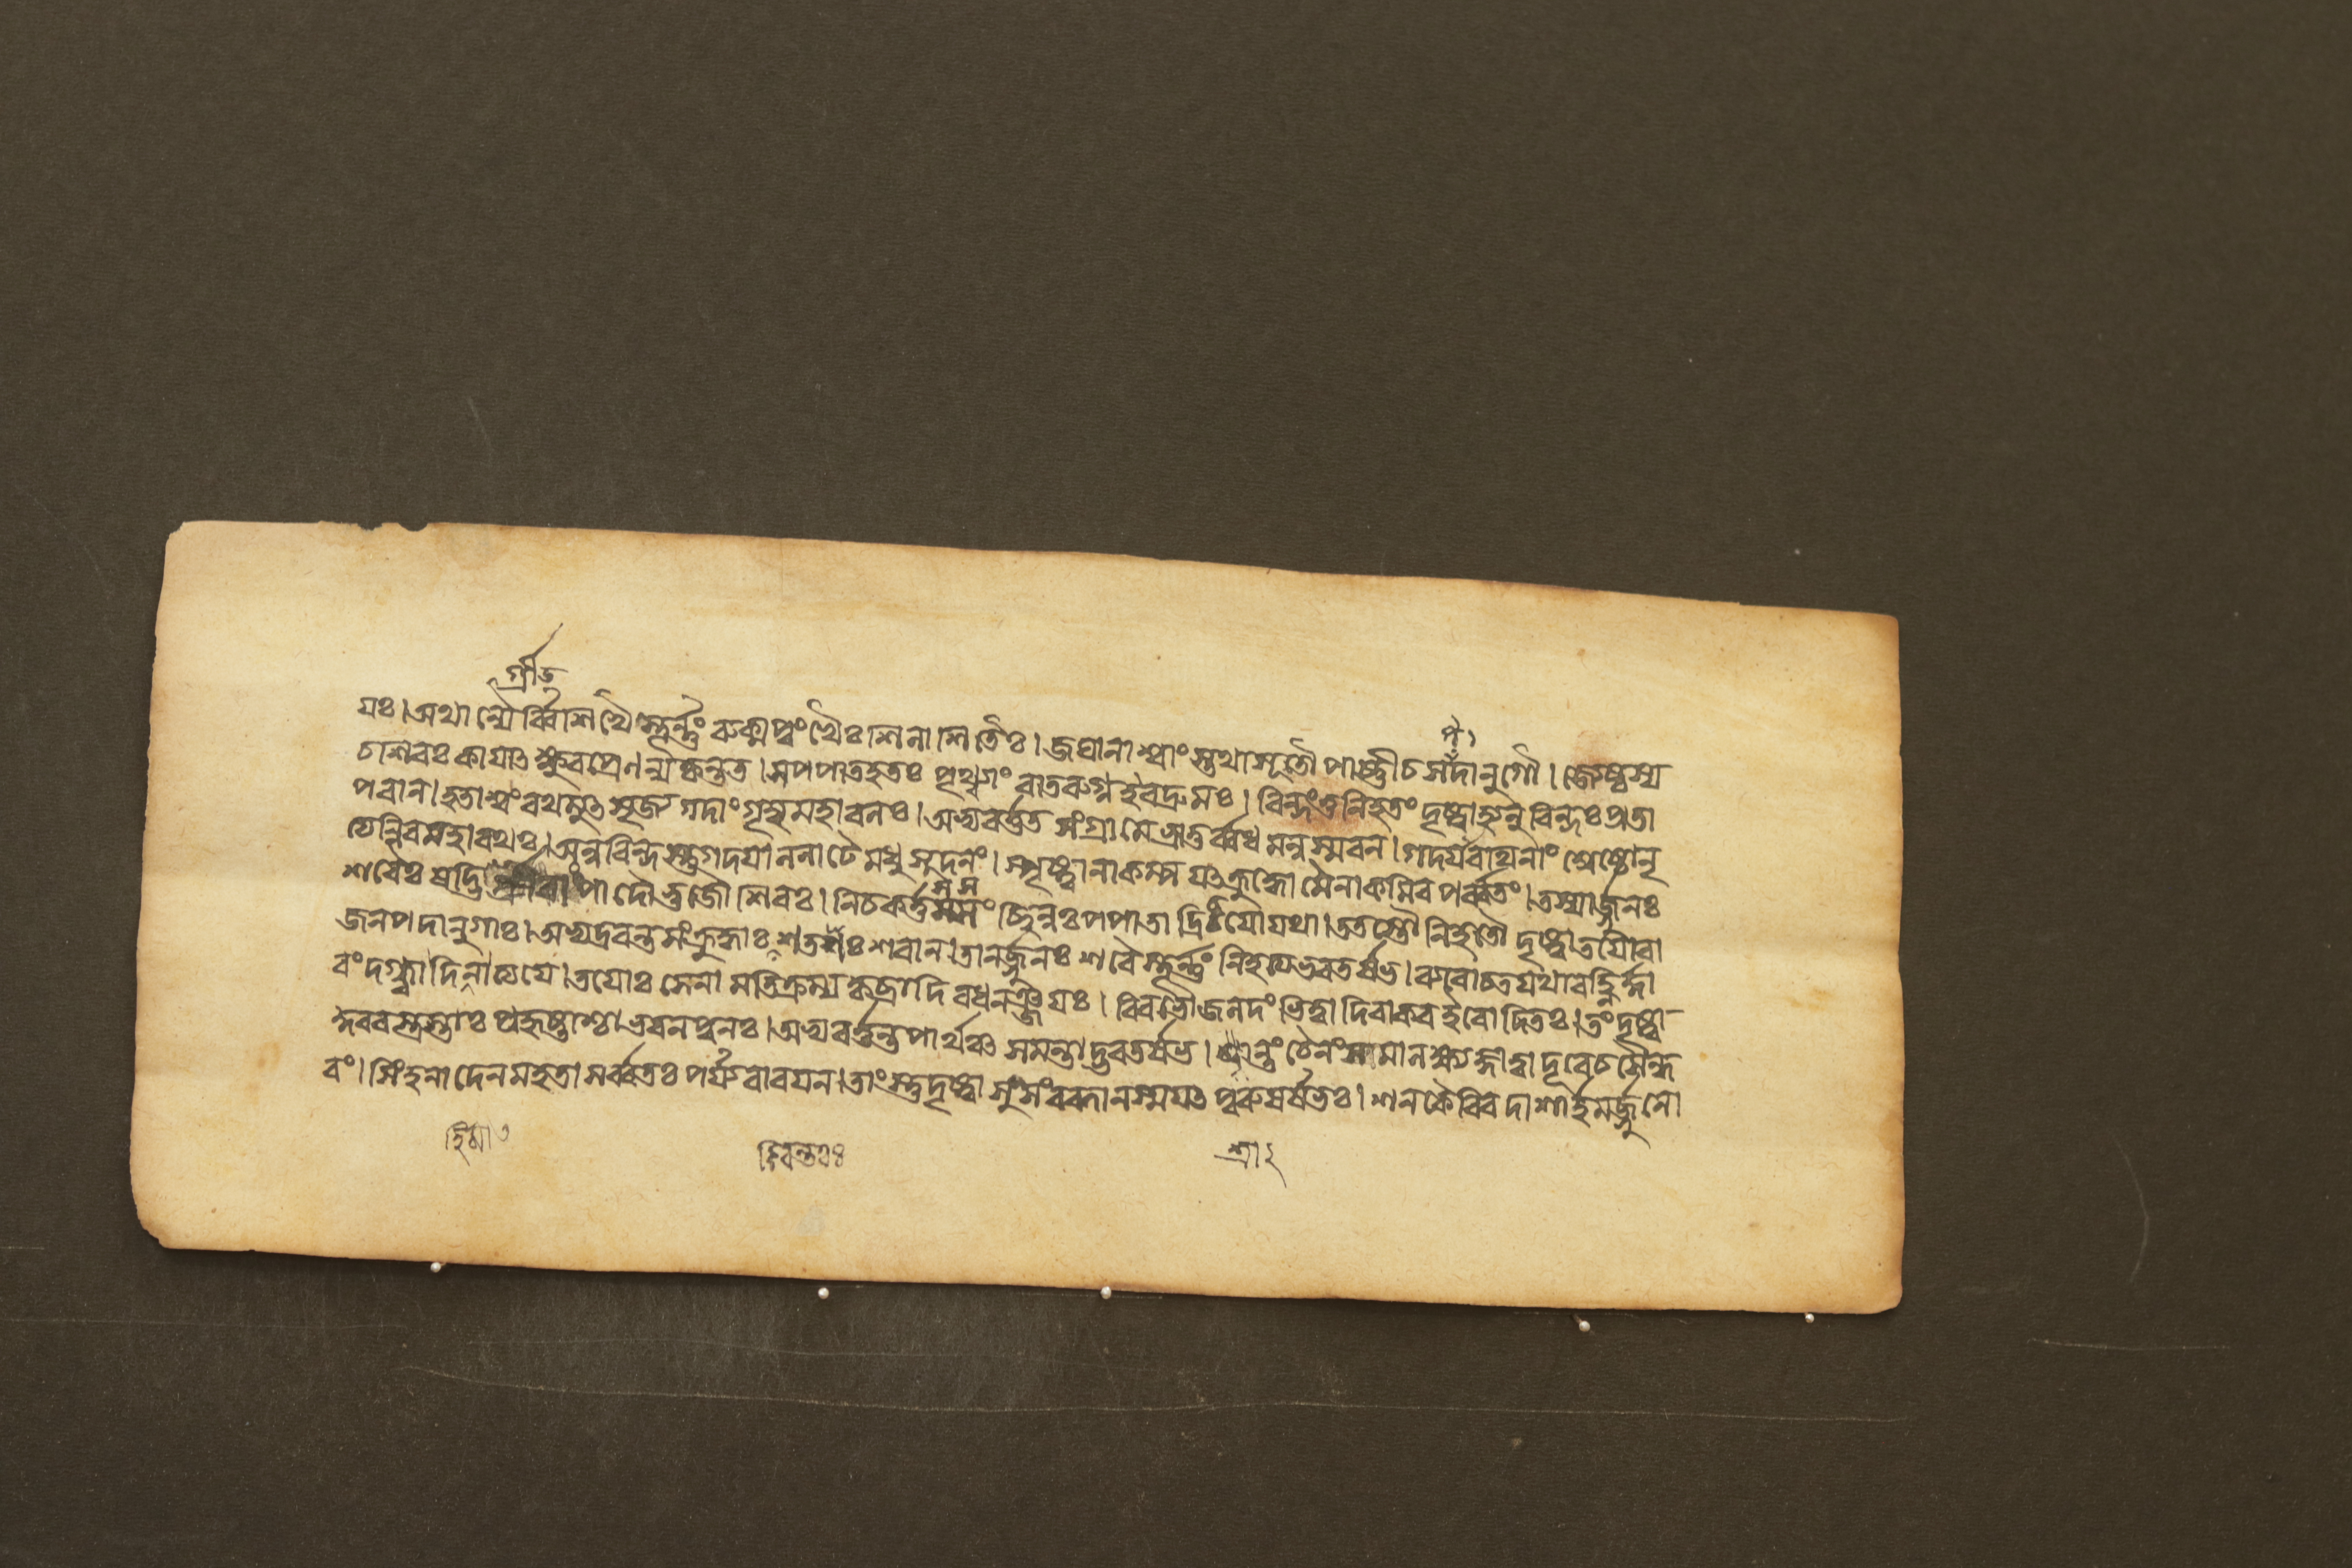 গ্রীভু
য়ঃ। অথান্যৈর্ব্বিশিখৈস্তূর্ন্নং রুক্মপুংখৈঃ শিলাশিতৈঃ। জঘানাশ্বাংস্তথাসূতৌ পার্ষ্ণীচসপদানুগৌ। জ্যেষ্ঠস্য
চশিরঃ কায়াৎ ক্ষুরপ্রেণ ন্যকৃন্তত। সপপাতহতঃ পৃথ্ব্যাং বাতরুগ্নইবদ্রুমঃ। বিন্দংতুনিহতং দৃষ্ট্বাহ্যনুবিন্দঃ প্রতা
পবান। হতাশ্বং রথমুৎসৃজ্য গদাং গৃহ্যমহাবলঃ। অভ্যবর্ত্তত সংগ্রামে ভ্রাতুর্ব্বধমনুস্মরন। গদয়াগদিনাং শ্রেষ্ঠোনৃ
ত্যন্নিবমহারথঃ। অনুবিন্দস্তুগদয়াললাটে মধুসূদনং। স্পৃষ্ট্বানাকম্পয়ৎক্রুদ্ধো মৈনাকমিব পর্ব্বতং। তস্যার্জ্জুনঃ
শরৈঃ ষদ্ভি গ্রীবাং পাদৌভুজৌশিরঃ। নিচকর্ত্তসসং চ্ছিন্নঃপপাতাদ্রিচয়ো যথা। ততস্তৌনিহতৌ দৃষ্ট্বাতয়োরা
জনপদানুগাঃ। অভ্যদ্রবন্তসংক্রুদ্ধাঃ শতশঃ শরান। তানর্জ্জুনঃ শরৈস্তূর্ন্নং নিহত্যভরতর্ষভ। ব্যরোচতযথাবহ্নির্দা
বং দগ্ধ্বাদিনাত্যয়ে। তয়োঃ সেনামতিক্রম্যকৃচ্ছ্রাদিবধনঞ্জয়ঃ। বিবভৌজলদং ভিত্ত্বাদিবাকরইবোদিতঃ। তংদৃষ্ট্বা
কুরবস্ত্রস্তাঃ প্রহৃষ্টাশ্চাভবনপুনঃ। অভ্যবর্ত্তন্তপার্থঞ্চ সমন্তাদ্ভরতর্ষভ। শ্রান্তং চৈনংসমালক্ষ্যজ্ঞাত্বাদূরেচসৈন্ধ
বং। সিংহনাদেনমহতাসর্ব্বতঃ পর্য্যবারয়ন। তাংস্তুদৃষ্ট্বা সুসংরব্ধানস্ময়ৎ পুরুষর্ষভঃ। শনকৈরিবদাশার্হমর্জ্জুনো
হিমা
কিরন্তঃ
শ্রা